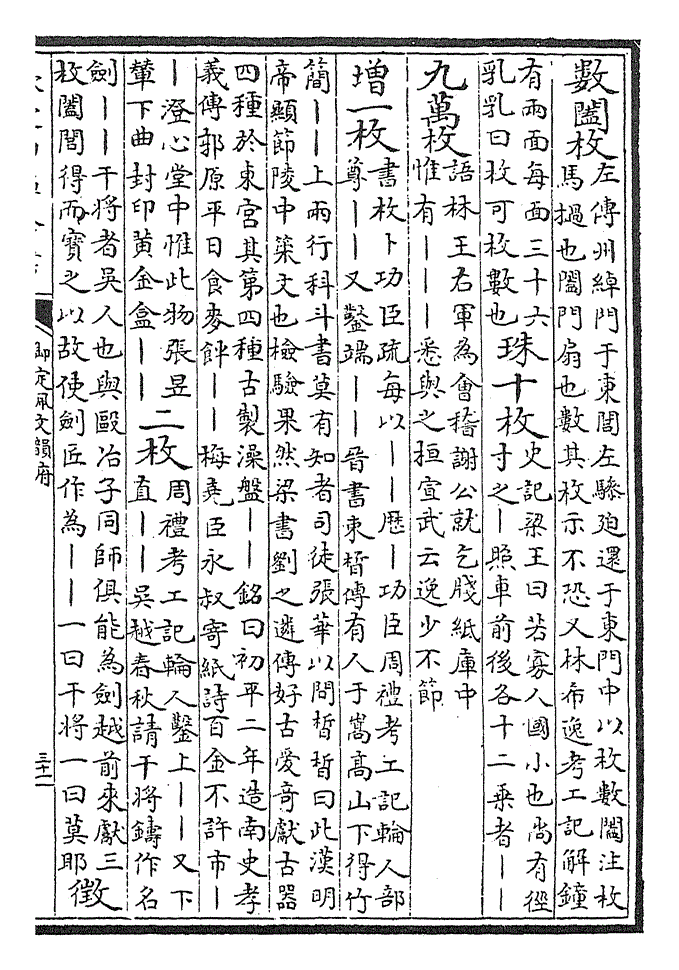 數闔枚左傳州綽門于東閭左驂迫還于東門中以枚數闔注枚
馬撾也闔門扇也數其枚示不恐又林希逸考工記解鐘
有兩面每面三十六
乳乳曰枚可枚數也
珠十枚史記梁王曰若寡人國小也尚有徑
寸之|照車前後各十二乘者||
九萬枚語林王右軍為會稽謝公就乞牋紙庫中
惟有|||悉與之桓宣武云逸少不節
增一枚書枚卜功臣疏每以||歷|功臣周禮考工記輪人部
尊||又鑿端||晉書束晳傳有人于嵩高山下得竹
簡||上兩行科斗書莫有知者司徒張華以問晳晳曰此漢明
帝顯節陵中策文也檢驗果然梁書劉之遴傳好古愛奇獻古器
四種於東宮其第四種古製澡盤||銘曰初平二年造南史孝
義傳郭原平日食麥䴵||梅堯臣永叔寄紙詩百金不許市|
|澄心堂中惟此物張昱
輦下曲封印黃金盒||
二枚周禮考工記輪人鑿上||又下
直||吳越春秋請干將鑄作名
劍||干將者吳人也與歐冶子同師俱能為劍越前來獻三
枚闔閭得而寶之以故使劍匠作為||一曰干將一曰莫耶
徵
御定佩文韻府
三十一